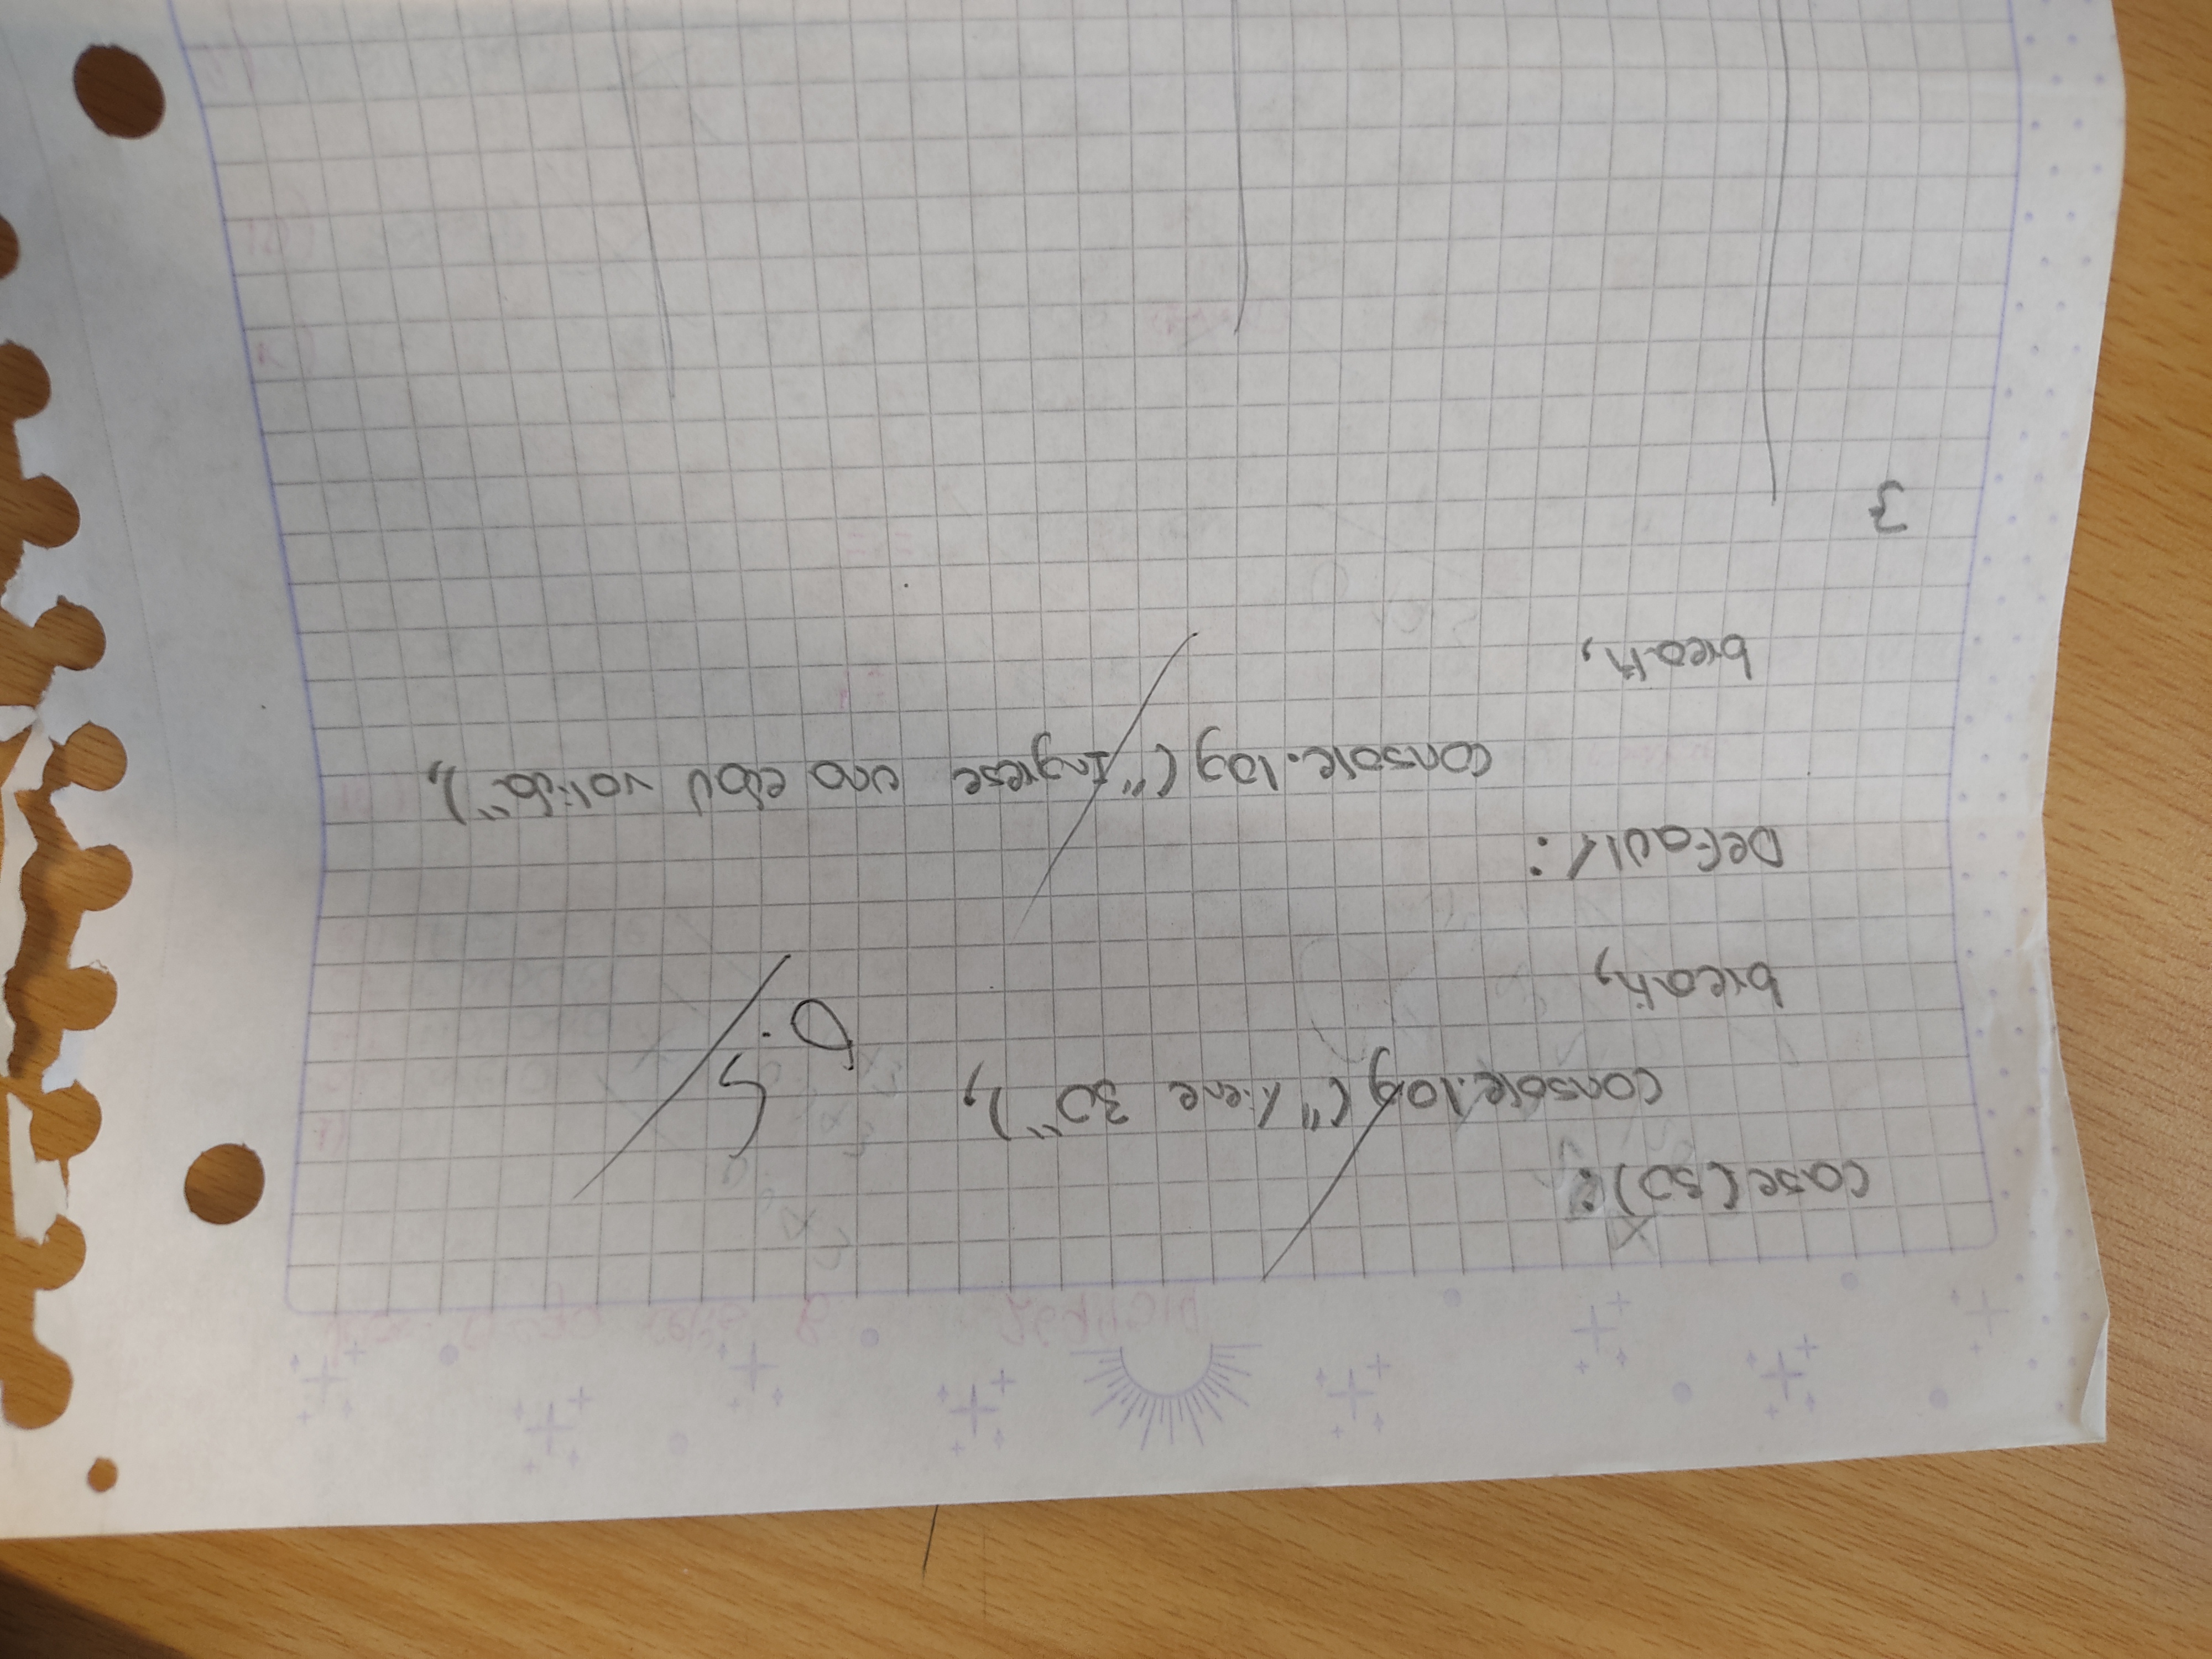 case(30):
console.log("Tiene 30"),
0.5
break,
Default:
console.log("Ingrese una edad valida"),
break,
}